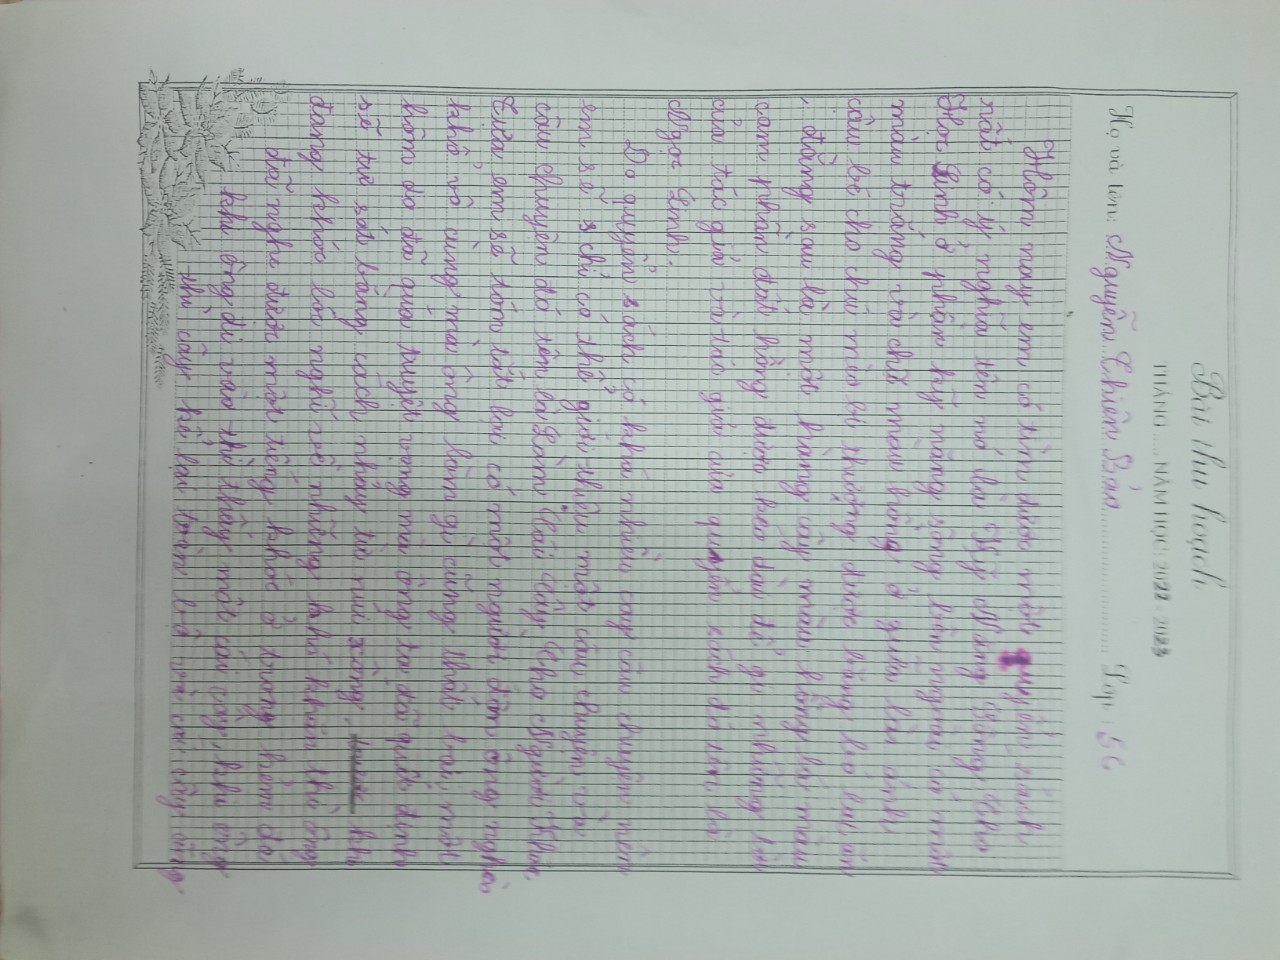 Bài thu hoạch
THÁNG ... NĂM HỌC: 2022 - 2023
Họ và tên: Nguyễn Thiên Bảo Lớp: 5C
Hôm nay em có tìm được một quyển sách
rất có ý nghĩa tên nó là Kỹ Năng Sống Cho
Học Sinh ở phần kỹ năng sống bên ngoài có một
màu trắng và chữ màu hồng ở giữa là ảnh
cậu bé cho chú mèo bị thương được băng bó lại
, đằng sau là một hàng cây màu hồng lá màu
cam phần đất hồng được kéo dài để ghi những
của tác giả và tác giả của quyển sách đó tên là
Ngọc Linh.
Do quyển sách có khá nhiều câu chuyện nên
em sẽ chỉ có thể giới thiệu một câu chuyện và
câu chuyện đó tên là Làm Cái Cây Cho Người Khác.
Thưa em sẽ tóm tắt lại có một người đàn ông nghèo
khổ vô cùng mà ông làm gì cũng thất bại một
hôm do đã quá tuyệt vọng mà ông ta đã quết định
sẽ tự sát bằng cách nhảy từ núi xống, khi
đang khóc lúc nghĩ về những khó khăn thì ông
đã nghe được một tiếng khóc ở trong hẻm đá
khi ông đi vào thì thấy một cái cây, khi ông
thì cây kể lại toàn bộ và cái cây ông